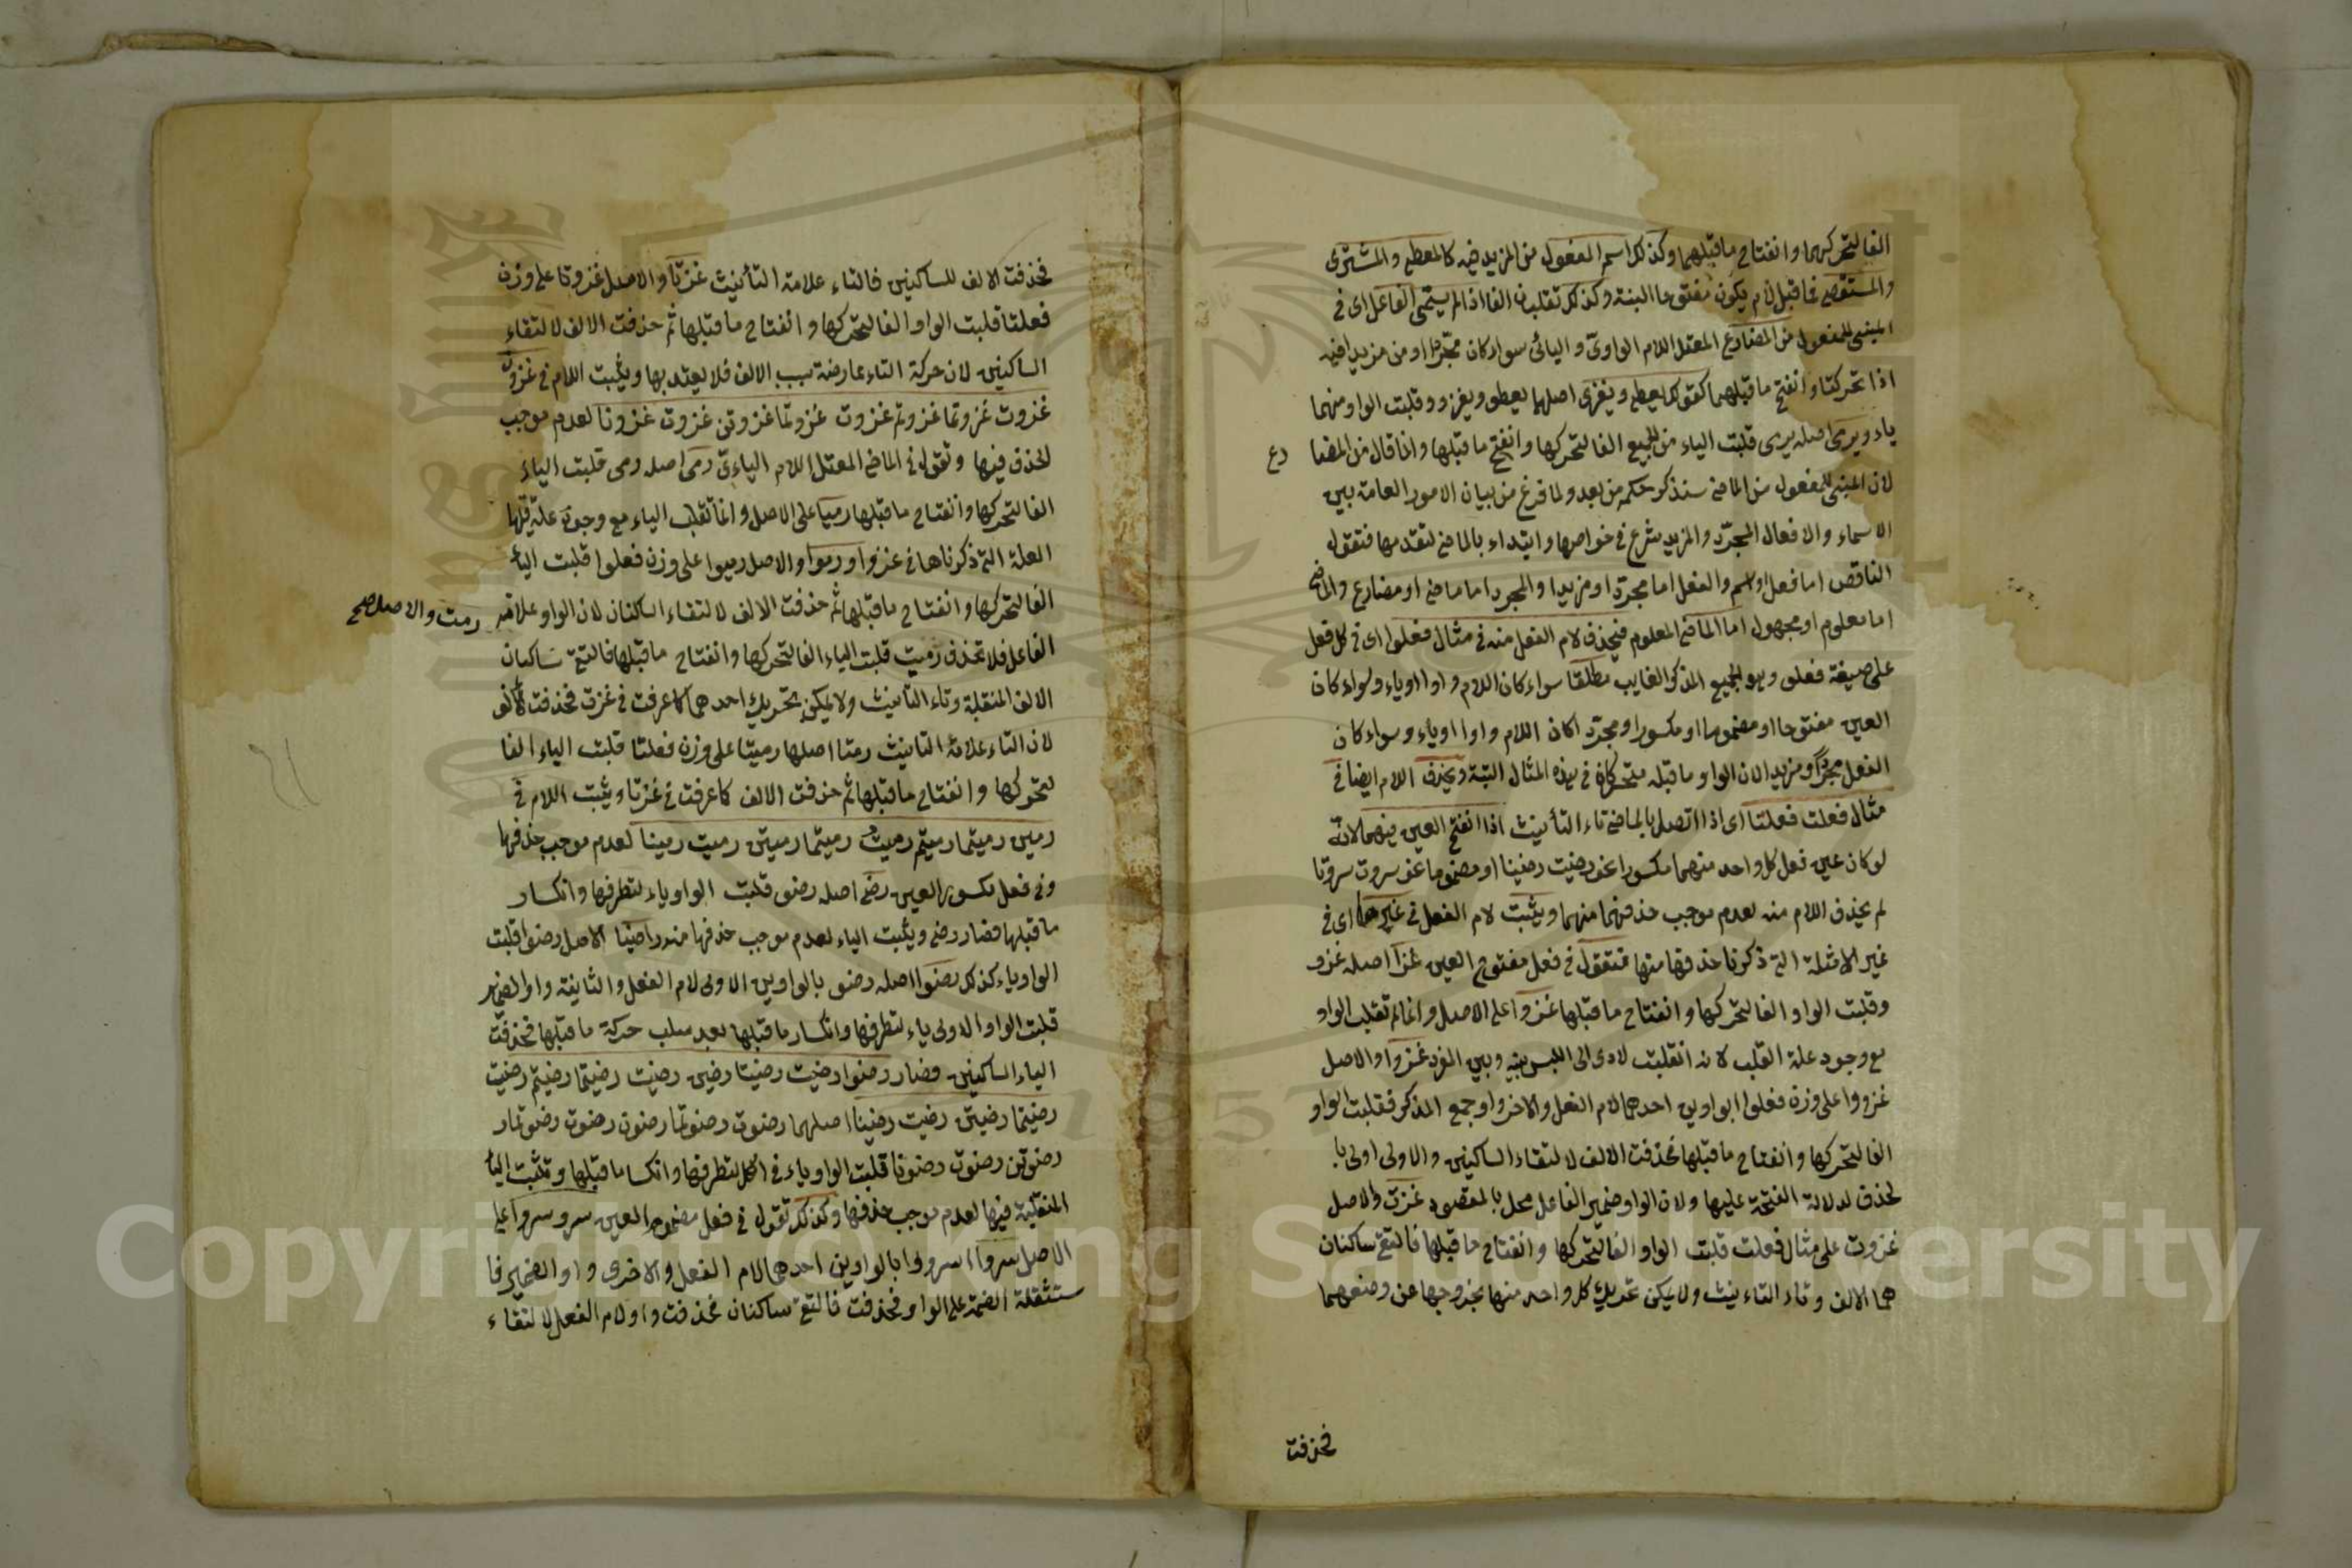 الفا لتحركهما وانفتاح ما قبلهما وكذلك اسم المفعول من المزيد فيه كالمعطى والمشترى
والمستقصى فما قبل لام يكون مفتوحا البتة وكذلك تقلبان الفا اذا لم يسم الفاعل اى في
المبنى للمفعول من المضارع المعتل اللام الواوى واليائى سواء كان مجردا او من مزيدا فيه
اذا تحركتا وانفتح ما قبلهما كقولك يعطى ويغزى اصلهما يعطو ويغزو وقلبت الواو منهما
ياء ويرمى اصله يرمى قلبت الياء من الجميع الفا لتحركها وانفتح ما قبلها وانما قال من المضا
رع
لان المبنى للمفعول من الماضى سنذكر حكمه من بعد ولما فرغ من بيان الامور العامة بين
الاسماء والافعال المجرد والمزيد شرع في خواصها وابتداء بالماضى لتقدمها فتقول
الناقص اما فعل او اسم والفعل اما مجرد او مزيدا والمجرد اما ماضى او مضارع والماضى
اما معلوم او مجهول اما الماضى المعلوم فيحذف لام الفعل منه في مثال فعلوا اى في كل فعل
على صيغة فعلو وهو الجميع المذكر الغايب مطلقا سواء كان اللام واوا او ياء وسواء كان
العين مفتوحا او مضموما او مكسورا ومجرد اكان اللام واوا او ياء وسواء كان
الفعل مجردا او مزيدا لان الواو وما قبله متحركان في هذه المثال البتة ويحذف اللام ايضا في
مثال فعلت فعلتا اى اذا اتصل بالماضى تاء التأنيث اذا انفتح العين فيهما لانه
لو كان عين فعل كل واحد منهما مكسورا نحو رضيت رضيتا او مضموما نحو سروت سروتا
لم يحذف اللام منه لعدم موجب حذفهما منهما ويثبت لام الفعل في غيرها اى في
غير الامثلة التي ذكرنا حذفها منها فتقول في فعل مفتوح العين غزا اصله غزو
وقلبت الواو الفا لتحركها وانفتاح ما قبلها غزوا على الاصل وانما لم تقلب الواو
مع وجود علة القلب لانه انقلبت لادى الى اللبس بينه وبين المفرد غزوا والاصل
غزووا على وزن فعلوا بواوين احدهما لام الفعل والاخر واو جمع المذكر فقلبت الواو
الفا لتحركها وانفتاح ما قبلها فحذفت الالف لالتقاء الساكنين والاولى اولى با
لحذف لدلالة الفتحة عليها ولان الواو ضمير الفاعل محل بالمقصود غزت والاصل
غزوت على مثال فعلت قلبت الواو الفا لتحركها وانفتاح ما قبلها فالتقى ساكنان
هما الالف وتاء التاءنيث ولا يمكن تحريك كل واحد منها بخروجها عن وضعهما
فحذفت
فحذفت الالف للساكنين فالتاء علامة التأنيث غزتا والاصل غزوتا على وزن
فعلتا قلبت الواو الفا لتحركها وانفتاح ما قبلها ثم حذفت الالف لالتقاء
الساكنين لان حركة التاء عارضة بسبب الالف فلا يعتد بها ويثبت اللام في غزون
غزوت غزوتما غزوتم غزوت غزوتما غزوتن غزوت غزونا لعدم موجب
الحذف فيها وتقول في الماضى المعتل اللام اليائى رمى اصله رمى قلبت الياء
الفا لتحركها وانفتاح ما قبلها رميا على الاصل وانما تقلب الياء مع وجود علة قلبها
العلة التي ذكرناها في غزوا ورموا والاصل رميوا على وزن فعلوا قلبت الياء
الفا لتحركها وانفتاح ما قبلها ثم حذفت الالف لالتقاء الساكنان لان الواو علامة
رمت والاصل صح
الفاعل فلا تحذف رميت قلبت الياء الفا لتحركها وانفتاح ما قبلها فالتقى ساكنان
الالف المنقلبة وتاء التأنيث ولا يمكن تحريك احدهما كما عرفت في غزت فحذفت الالف
لان التاء علامة التانيث رمتا اصلها رميتا على وزن فعلتا قلبت الياء الفا
لتحركها وانفتاح ما قبلها ثم حذفت الالف كما عرفت في غزتا ويثبت اللام في
رمين رميتما رميتم رميت رميتما رميتن رميت رمينا لعدم موجب حذفها
وفى فعل مكسور العين رضى اصله رضو قلبت الواو ياء لتطرفها وانكسار
ما قبلها فصار رضى ويثبت الياء لعدم موجب حذفها منه رضيا الاصل رضوا قلبت
الواو ياء كذلك رضوا اصله رضوو بالواوين الاولى لام الفعل والثانية واو الضمير
قلبت الواو الاولى ياء لتطرفها وانكسار ما قبلها بعد سلب حركة ما قبلها فحذفت
الياء الساكنين فصار رضوا رضيت رضيتا رضين رضيت رضيتما رضيتم رضيت
رضيتما رضيتن رضيت رضينا اصلهما رضوت رضوتما رضوت رضوت رضوتما ر
رضوتن رضوت رضونا قلبت الواو ياء في الكل لتطرفها وانكسا ما قبلها وتثبت الياء
المنقلبة فيها لعدم موجب حذفها وكذلك تقول في فعل مضموم العين سرو سروا على
الاصل سروا اسرووا بالواوين احدهما لام الفعل والاخرى واو الضمير فا
ستثقلة الضمة على الواو فحذفت فالتقى ساكنان فحذفت واو لام الفعل لالتقاء